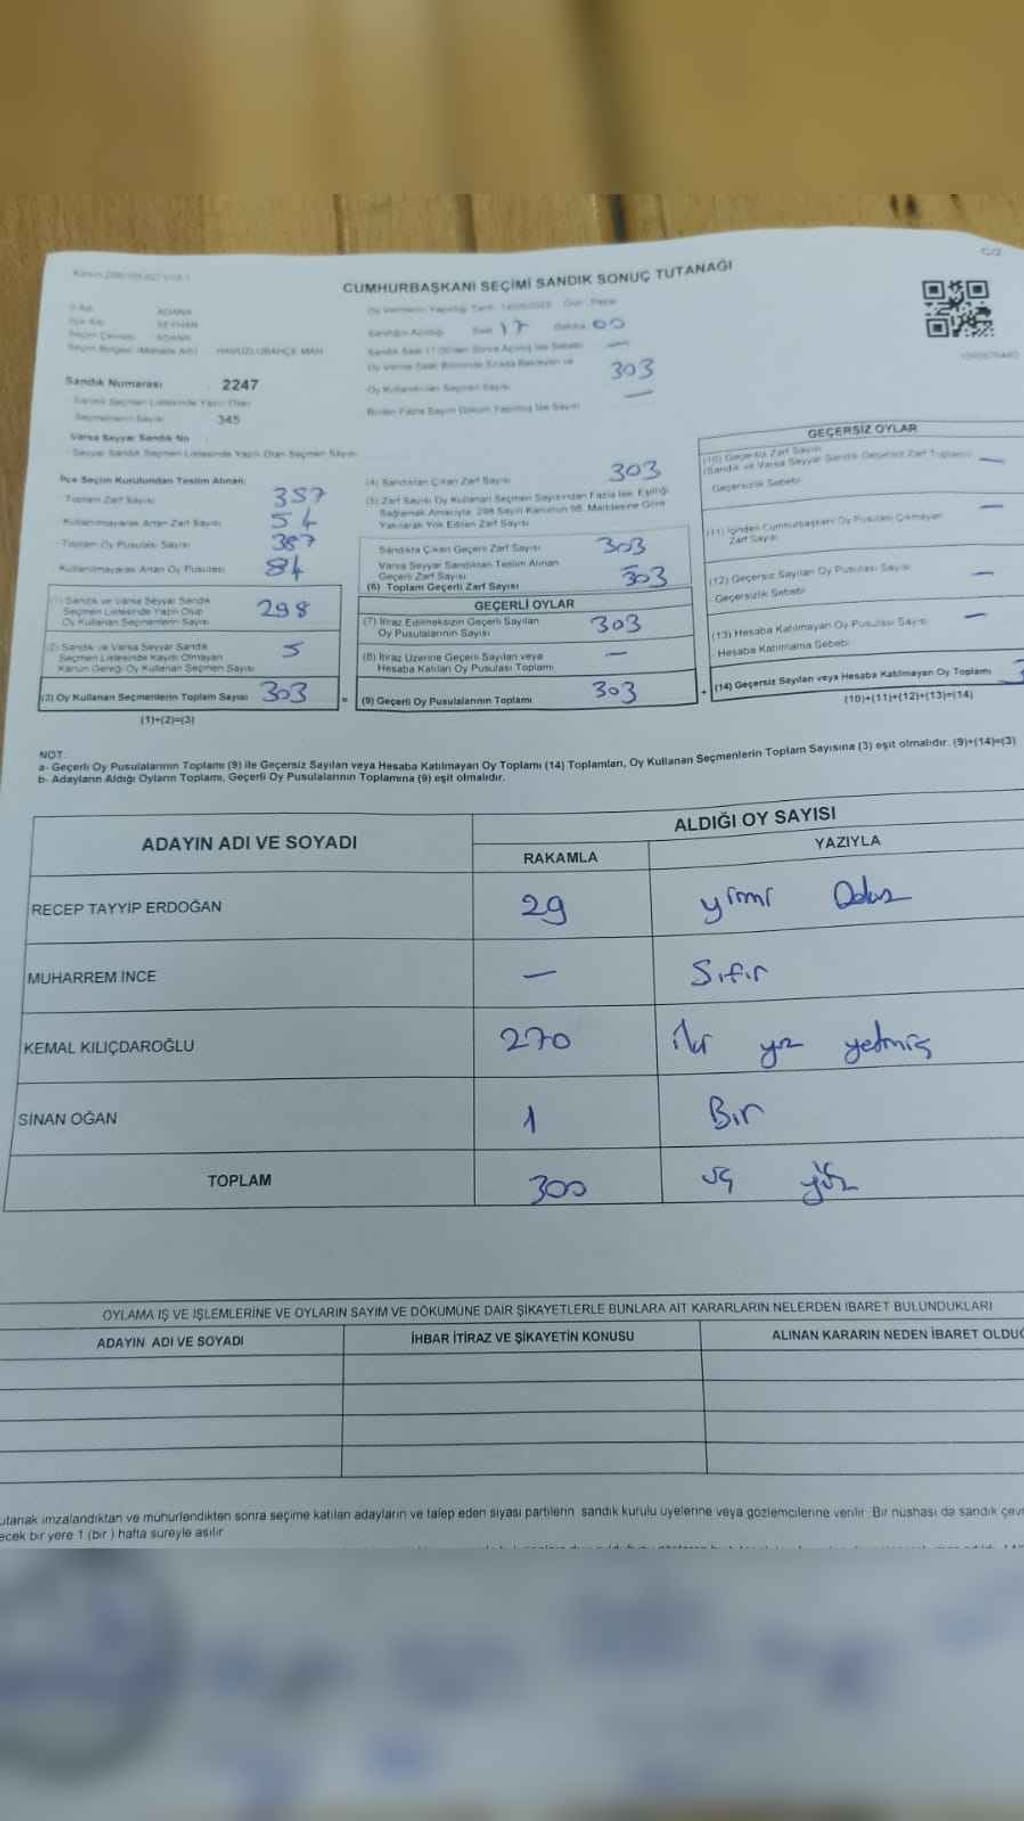 C/2
CUMHURBAŞKANI SEÇİMİ SANDIK SONUÇ TUTANAĞI
ADANA
SEYHAN
ADANA
HAVUZLUBAHÇE MAH
Saat 17 Dakika 00
303
—
Sandık Numarası 2247
345
Varsa Seyyar Sandık No
İlçe Seçim Kurulundan Teslim Alınan:
Toplam Zarf Sayısı 357
Kullanılmayarak Artan Zarf Sayısı 54
Toplam Oy Pusulası Sayısı 387
Kullanılmayarak Artan Oy Pusulası 84
(1) Sandık ve Varsa Seyyar Sandık
Seçmen Listesinde Yazılı Olup
Oy Kullanan Seçmenlerin Sayısı 298
(2) Sandık ve Varsa Seyyar Sandık
Seçmen Listesinde Kayıtlı Olmayan
Kanun Gereği Oy Kullanan Seçmen Sayısı 5
(3) Oy Kullanan Seçmenlerin Toplam Sayısı 303
(1)+(2)=(3)
(4) Sandıktan Çıkan Zarf Sayısı 303
(5) Zarf Sayısı Oy Kullanan Seçmen Sayısından Fazla İse, Eşitliği
Sağlamak Amacıyla, 298 Sayılı Kanunun 98. Maddesine Göre
Yakılarak Yok Edilen Zarf Sayısı
Sandıkta Çıkan Geçerli Zarf Sayısı 303
Varsa Seyyar Sandıktan Teslim Alınan
Geçerli Zarf Sayısı —
(6) Toplam Geçerli Zarf Sayısı 303
GEÇERLİ OYLAR
(7) İtiraz Edilmeksizin Geçerli Sayılan
Oy Pusulalarının Sayısı 303
(8) İtiraz Üzerine Geçerli Sayılan veya
Hesaba Katılan Oy Pusulası Toplamı —
= (9) Geçerli Oy Pusulalarının Toplamı 303
GEÇERSİZ OYLAR
(10) Geçersiz Zarf Sayısı
(Sandık ve Varsa Seyyar Sandık Geçersiz Zarf Toplamı) —
Geçersizlik Sebebi
(11) İçinden Cumhurbaşkanı Oy Pusulası Çıkmayan
Zarf Sayısı —
(12) Geçersiz Sayılan Oy Pusulası Sayısı —
Geçersizlik Sebebi
(13) Hesaba Katılmayan Oy Pusulası Sayısı —
Hesaba Katılmama Sebebi
+ (14) Geçersiz Sayılan veya Hesaba Katılmayan Oy Toplamı
(10)+(11)+(12)+(13)=(14)
NOT
a- Geçerli Oy Pusulalarının Toplamı (9) ile Geçersiz Sayılan veya Hesaba Katılmayan Oy Toplamı (14) Toplamları, Oy Kullanan Seçmenlerin Toplam Sayısına (3) eşit olmalıdır. (9)+(14)=(3)
b- Adayların Aldığı Oyların Toplamı, Geçerli Oy Pusulalarının Toplamına (9) eşit olmalıdır.
ADAYIN ADI VE SOYADI ALDIĞI OY SAYISI
RAKAMLA YAZIYLA
RECEP TAYYİP ERDOĞAN 29 yirmi Dokuz
MUHARREM İNCE — Sıfır
KEMAL KILIÇDAROĞLU 270 iki yüz yetmiş
SİNAN OĞAN 1 Bir
TOPLAM 300 üç yüz
OYLAMA İŞ VE İŞLEMLERİNE VE OYLARIN SAYIM VE DÖKÜMÜNE DAİR ŞİKAYETLERLE BUNLARA AİT KARARLARIN NELERDEN İBARET BULUNDUKLARI
ADAYIN ADI VE SOYADI İHBAR İTİRAZ VE ŞİKAYETİN KONUSU ALINAN KARARIN NEDEN İBARET OLDUĞ
utanak imzalandıktan ve mühürlendikten sonra seçime katılan adayların ve talep eden siyasi partilerin sandık kurulu üyelerine veya gözlemcilerine verilir. Bir nüshası da sandık çev
ecek bir yere 1 (bir ) hafta süreyle asılır